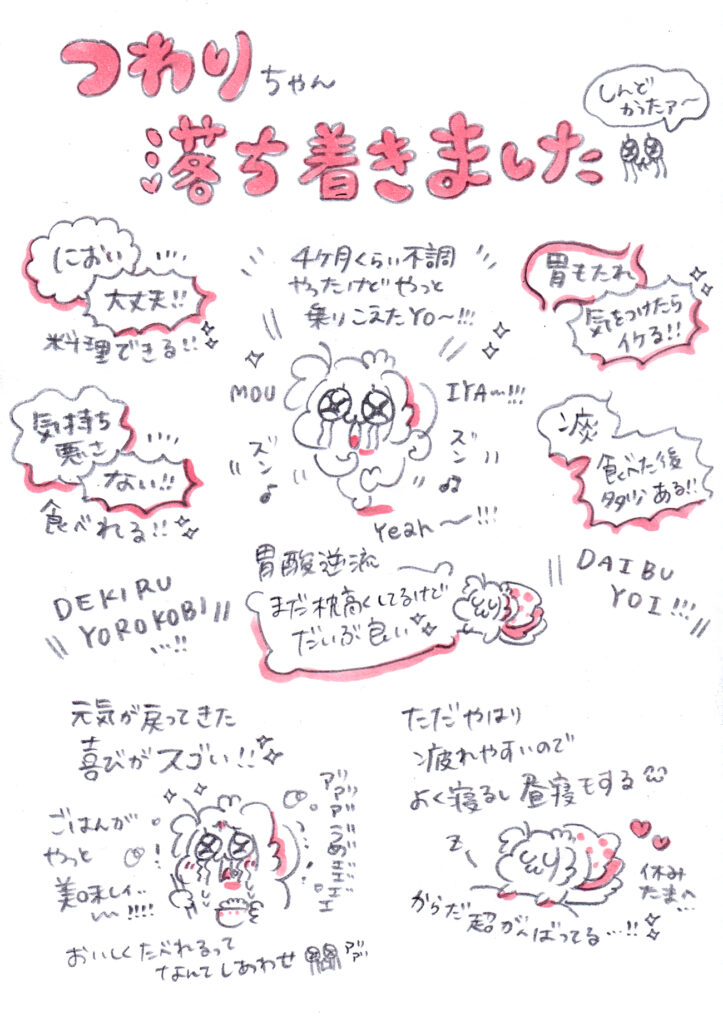 つわりちゃん
落ち着きました
しんど
かったァ〜
におい
大丈夫!!
料理できる!!
4ヶ月くらい不調
やったけどやっと
乗りこえたYO〜!!!
胃もたれ
気をつけたら
イケる!!
気持ち
悪さ
ない!!
食べれる!!
MOU
IYA〜!!!
ズン
ズン
Yeah〜!!!
痰
食べた後
タタツ ある!!
DEKIRU
YOROKOBI
...!!
胃酸逆流
まだ枕高くしてるけど
だいぶ良い
DAIBU
YOI!!!
元気が戻ってきた
喜びがスゴい!!
ごはんが
やっと
美味しィ…
〜!!!!
おいしくたべれるって
なんてしあわせ
ただやはり
疲れやすいので
よく寝るし昼寝もする
z
休み
たまへ…
からだ
超がんばってる…!!